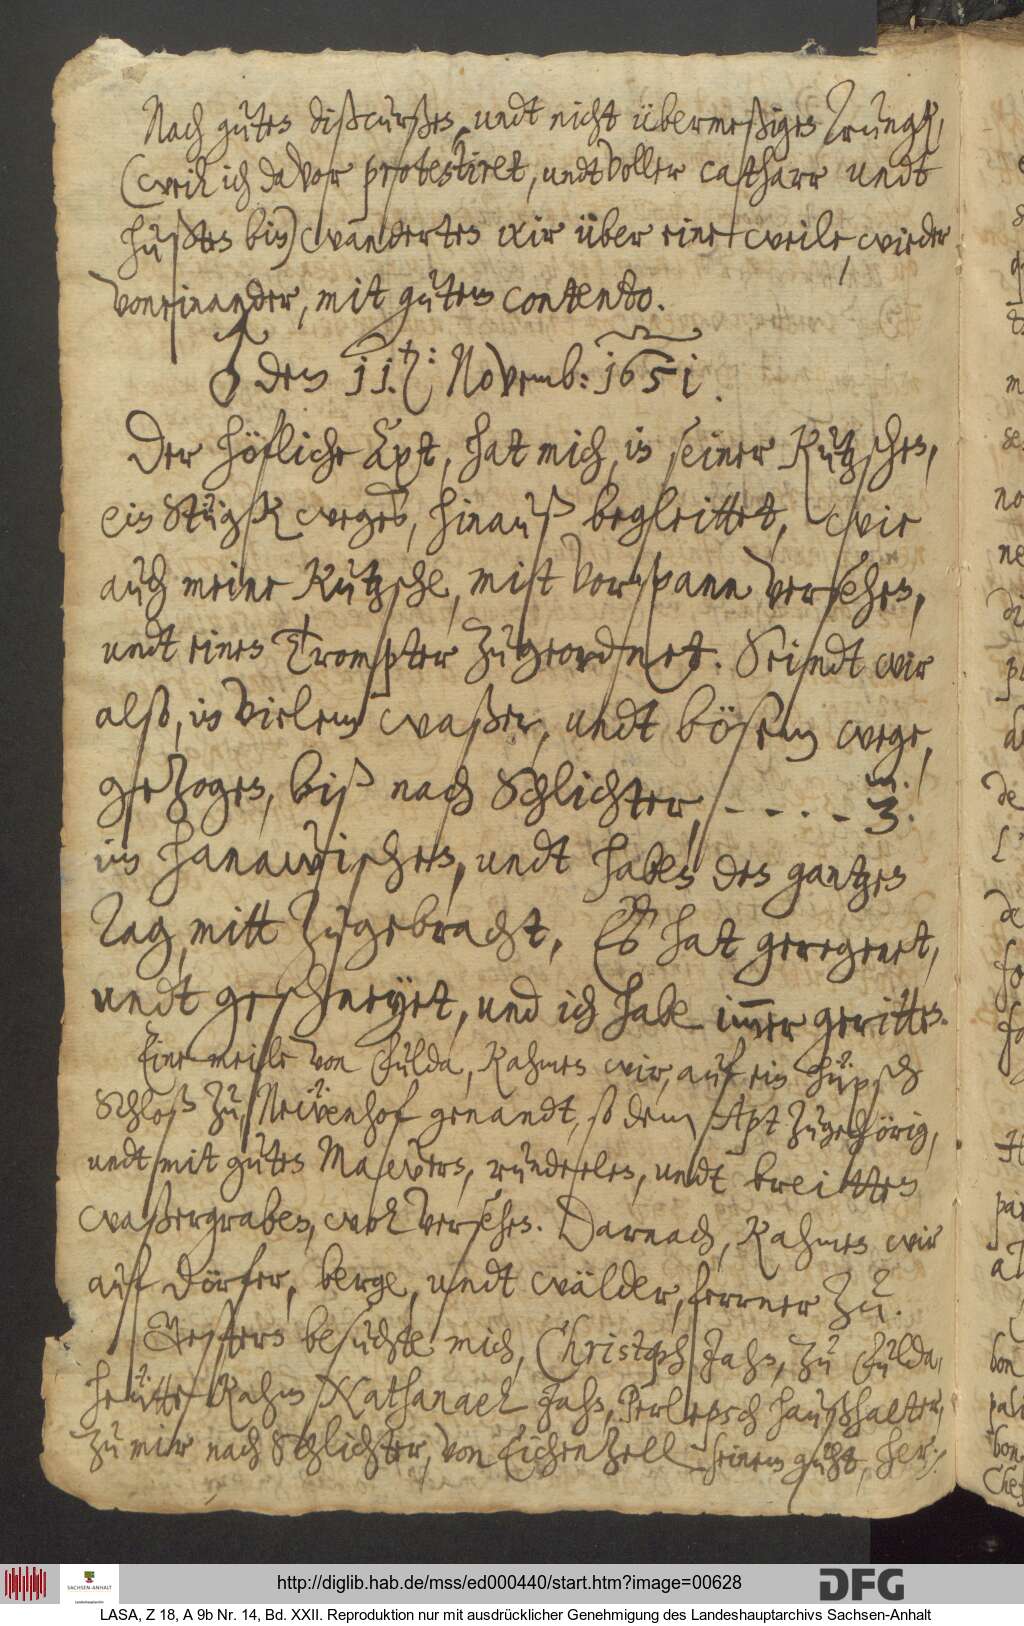 Nach gutes dißcurßes, undt nicht übermeßiges Trungk,
(weil ich davor protestiret, undt voller catharr undt
hustes bin) wandertes wir über eine weile, wieder
voneinander, mit gutem contento.
♂ den 11.t: Novemb: 1651.
Der höfliche Apt, hat mich, in seiner Kutzsches,
ein Stügk weges, hinauß begleittet, wie
auch meine Kutzsche, mit Vorspann versehes,
undt eines Trompter zugeordnet. Seindt wir
also, in vielem waßer, undt bösem wege,
gezoges, biß nach Schlichter, - - - - 3. m.
im Hanawisches, undt habes des gantzes
Tag, mitt zugebracht, Es hat geregenet,
undt geschneyet, und ich habe immer gerittes.
Eine meile von Fulda, Kahmes wir, auf ein hüpsch
Schloß zu, Neüenhof genandt, so dem Apt zugehörig,
undt mit gutes Mawers, rundeeles, undt breittes
waßergrabes, wol versehes. Darnach, Kahmes wir
auf dörfer, berge, undt wälder, ferrner zu.
Gesters besuchte mich, Christoph Jahs, zu Fulda,
heütte Kahm Nathanael Jahs, Perlepsch haußhalter,
zu mir nach Schlichter, von Eichenzell seinem guht, her./
http://diglib.hab.de/mss/ed000440/start.htm?image=00628
DFG
SACHSEN-ANHALT
LASA, Z 18, A 9b Nr. 14, Bd. XXII. Reproduktion nur mit ausdrücklicher Genehmigung des Landeshauptarchivs Sachsen-Anhalt